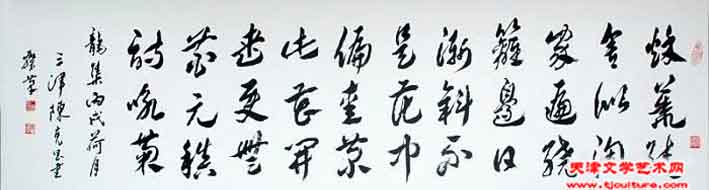 秋叢繞
舍似陶
家遍繞
籬邊日
漸斜不
是花中
偏愛菊
此花開
盡更無
花元稹
詩咏菊
龍集丙戌荷月
三津陳克書
天津文学艺术网
www.tjculture.com